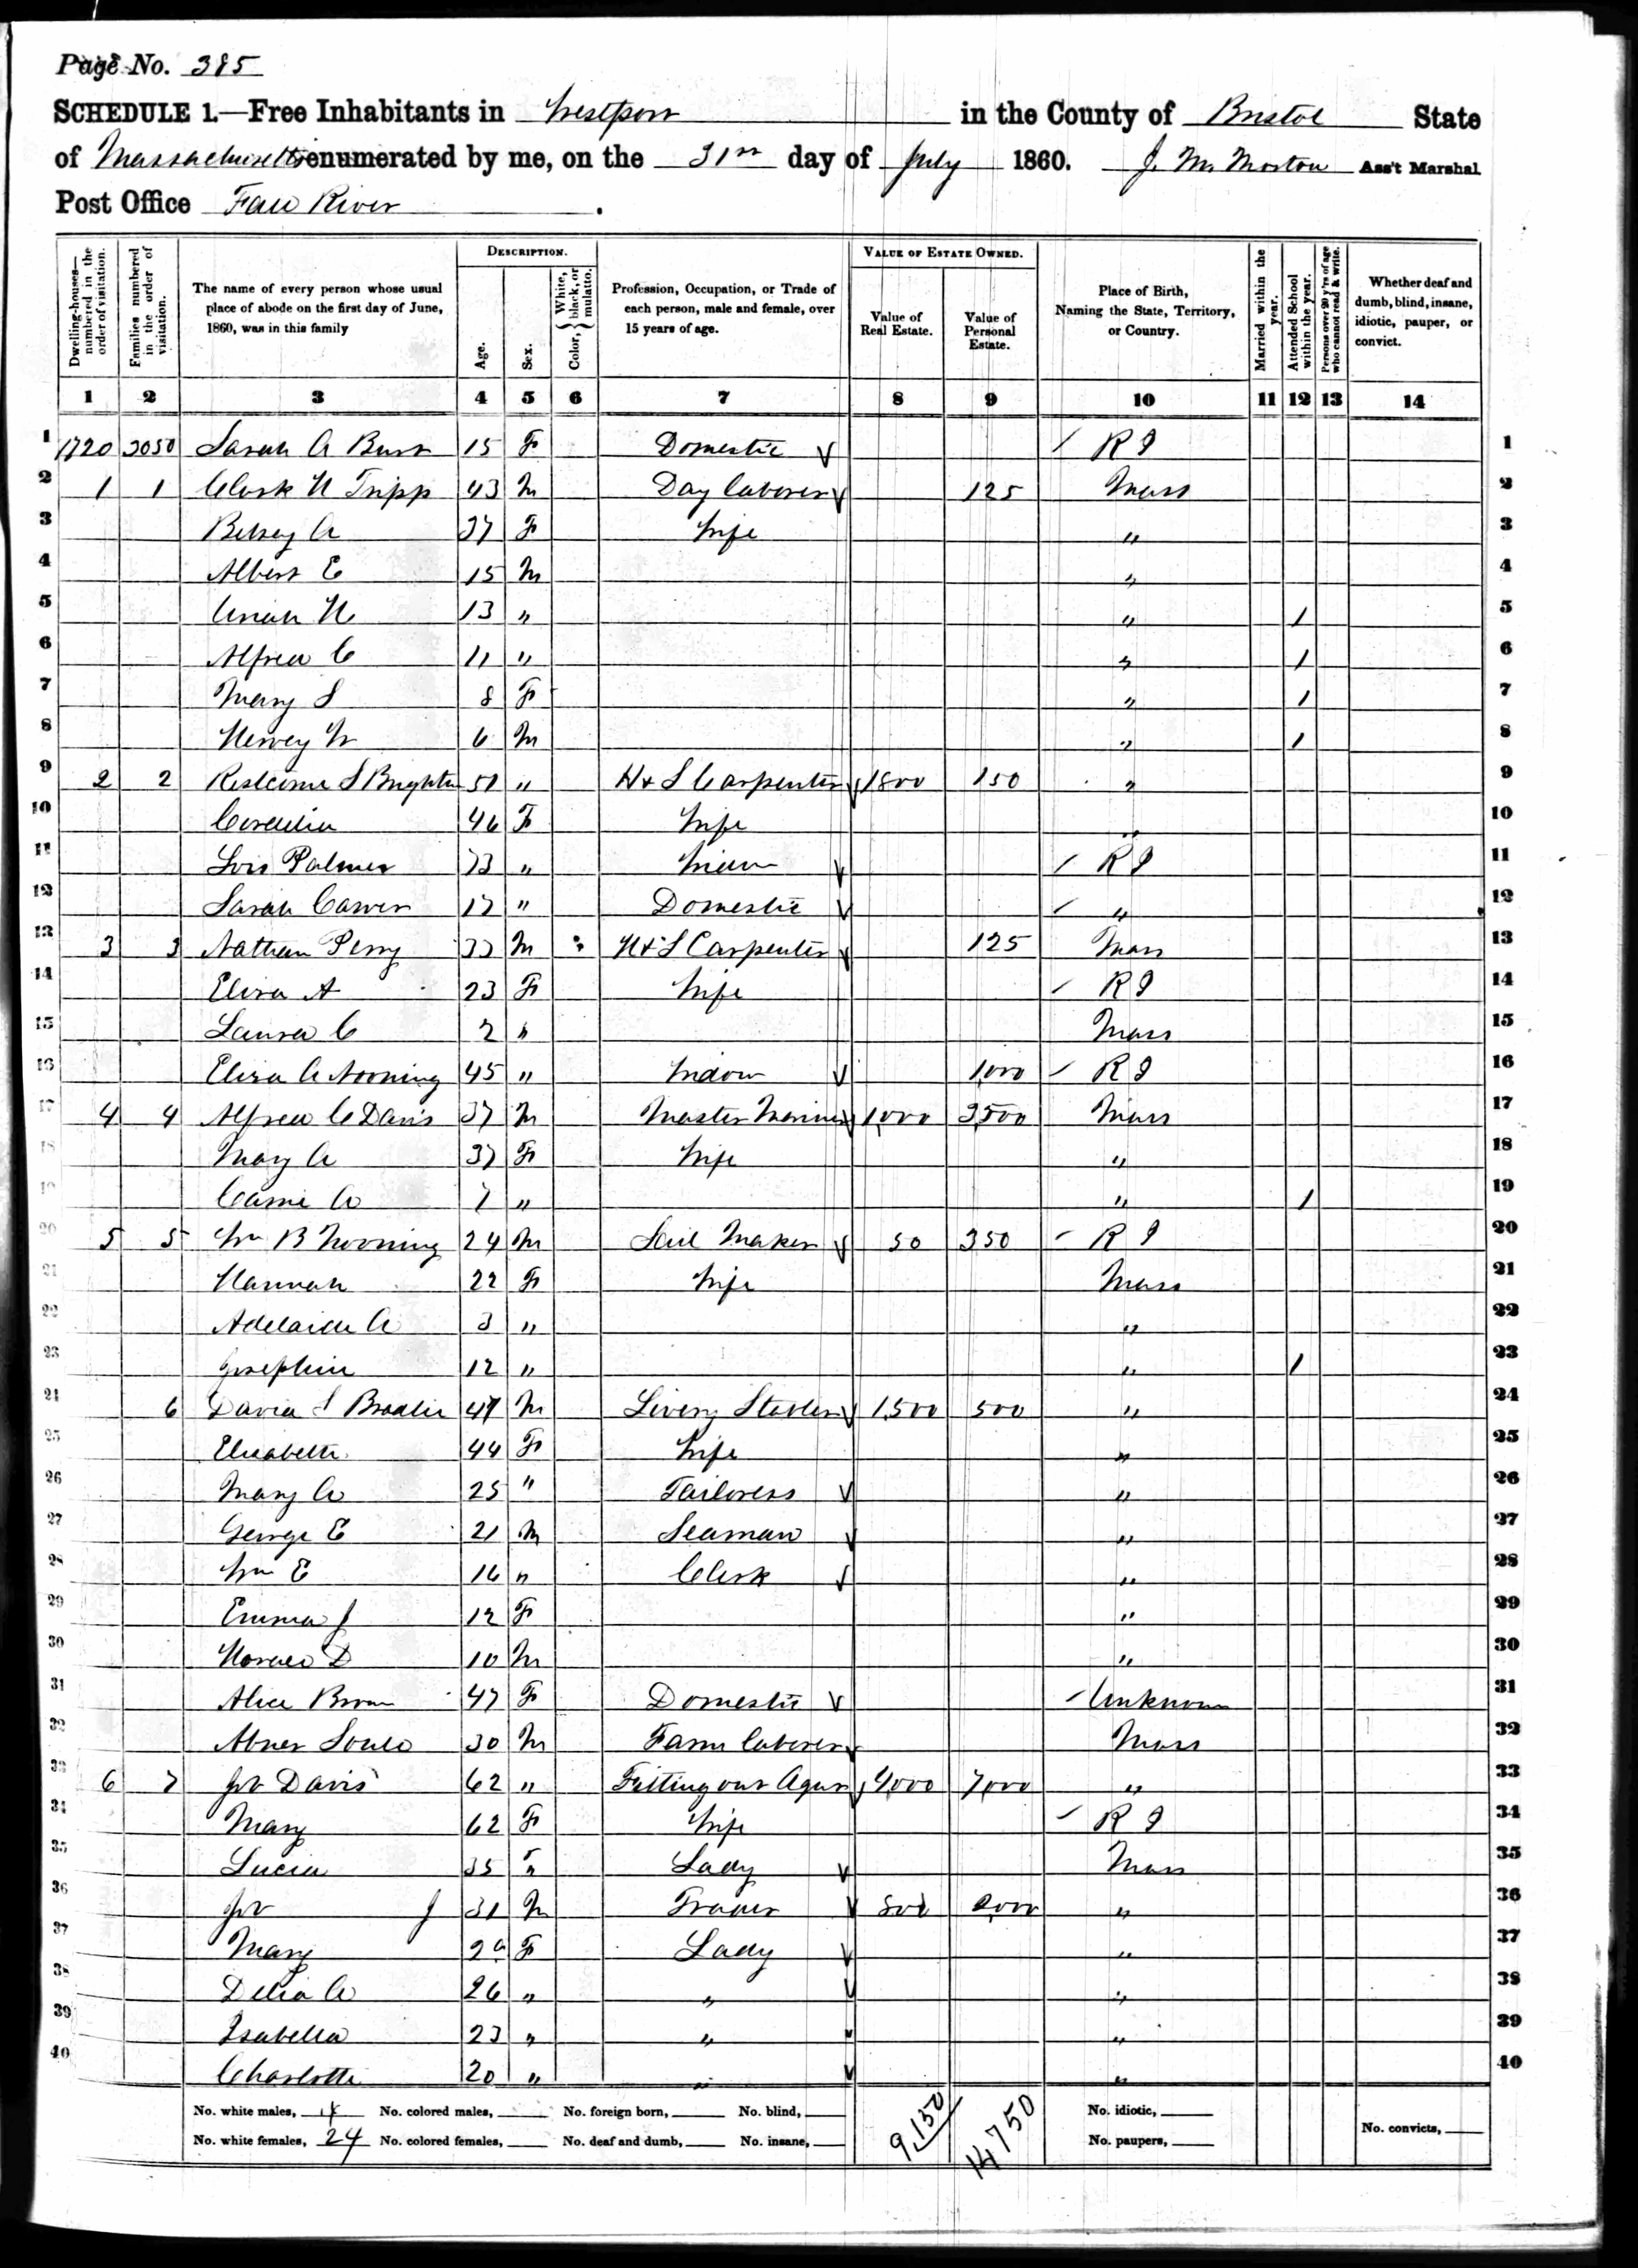 Page No. 385
SCHEDULE 1.—Free Inhabitants in Westport in the County of Bristol State
of Massachusetts enumerated by me, on the 31st day of July 1860. J. M. Morton Ass't Marshal
Post Office Fall River.
Dwelling-houses—numbered in the order of visitation.
Families numbered in the order of visitation.
The name of every person whose usual place of abode on the first day of June, 1860, was in this family
DESCRIPTION.
Age.
Sex.
Color, { White, black, or mulatto.
Profession, Occupation, or Trade of each person, male and female, over 15 years of age.
VALUE OF ESTATE OWNED.
Value of Real Estate.
Value of Personal Estate.
Place of Birth, Naming the State, Territory, or Country.
Married within the year.
Attended School within the year.
Persons over 20 y'rs of age who cannot read & write.
Whether deaf and dumb, blind, insane, idiotic, pauper, or convict.
1 2 3 4 5 6 7 8 9 10 11 12 13 14
1 1720 2050 Sarah A 15 F Domestic R I 1
2 1 1 Clark H Tripp 43 M Day laborer 125 Mass 2
3 Betsey A 37 F Wife " 3
4 Albert E 15 M " 4
5 Uriah H 13 " " 1 5
6 Alfred C 11 " " 1 6
7 Mary S 8 F " 1 7
8 Hervey W 6 M " 1 8
9 2 2 Restcome S Brightm 51 " H & S Carpenter 1800 150 " 9
10 Cordelia 46 F Wife " 10
11 Lois Palmer 73 " Widow R I 11
12 Sarah 17 " Domestic " 12
13 3 3 Nathan Perry 33 M H & S Carpenter 125 Mass 13
14 Eliza A 23 F Wife R I 14
15 Laura C 2 " Mass 15
16 Eliza A 45 " Widow 1,000 R I 16
17 4 4 Alfred C Davis 37 M Master Mariner 1,000 3,500 Mass 17
18 Mary A 37 F Wife " 18
19 Carrie A 7 " " 1 19
20 5 5 Wm B 24 M Sail Maker 50 350 R I 20
21 Hannah 22 F Wife Mass 21
22 Adelaide A 3 " " 22
23 Josephine 12 " " 1 23
24 6 David S 47 M Livery Stabler 1,500 500 " 24
25 Elizabeth 44 F Wife " 25
26 Mary A 25 " Tailoress " 26
27 George E 21 M Seaman " 27
28 Wm E 16 " Clerk " 28
29 Emma J 12 F " 29
30 Horace D 10 M " 30
31 Alice Brown 47 F Domestic Unknown 31
32 Abner Soule 30 M Farm laborer Mass 32
33 6 7 Jno Davis 62 " Fitting out Agent 4,000 7,000 " 33
34 Mary 62 F Wife R I 34
35 Lucia 35 F Lady Mass 35
36 Jno J 31 M Trader 800 2,000 " 36
37 Mary F Lady " 37
38 Delia A 26 " " " 38
39 Isabella 23 " " " 39
40 Charlotte 20 " " " 40
No. white males, No. colored males, No. foreign born, No. blind, 9,150 14,750 No. idiotic,
No. white females, 24 No. colored females, No. deaf and dumb, No. insane, No. paupers, No. convicts,